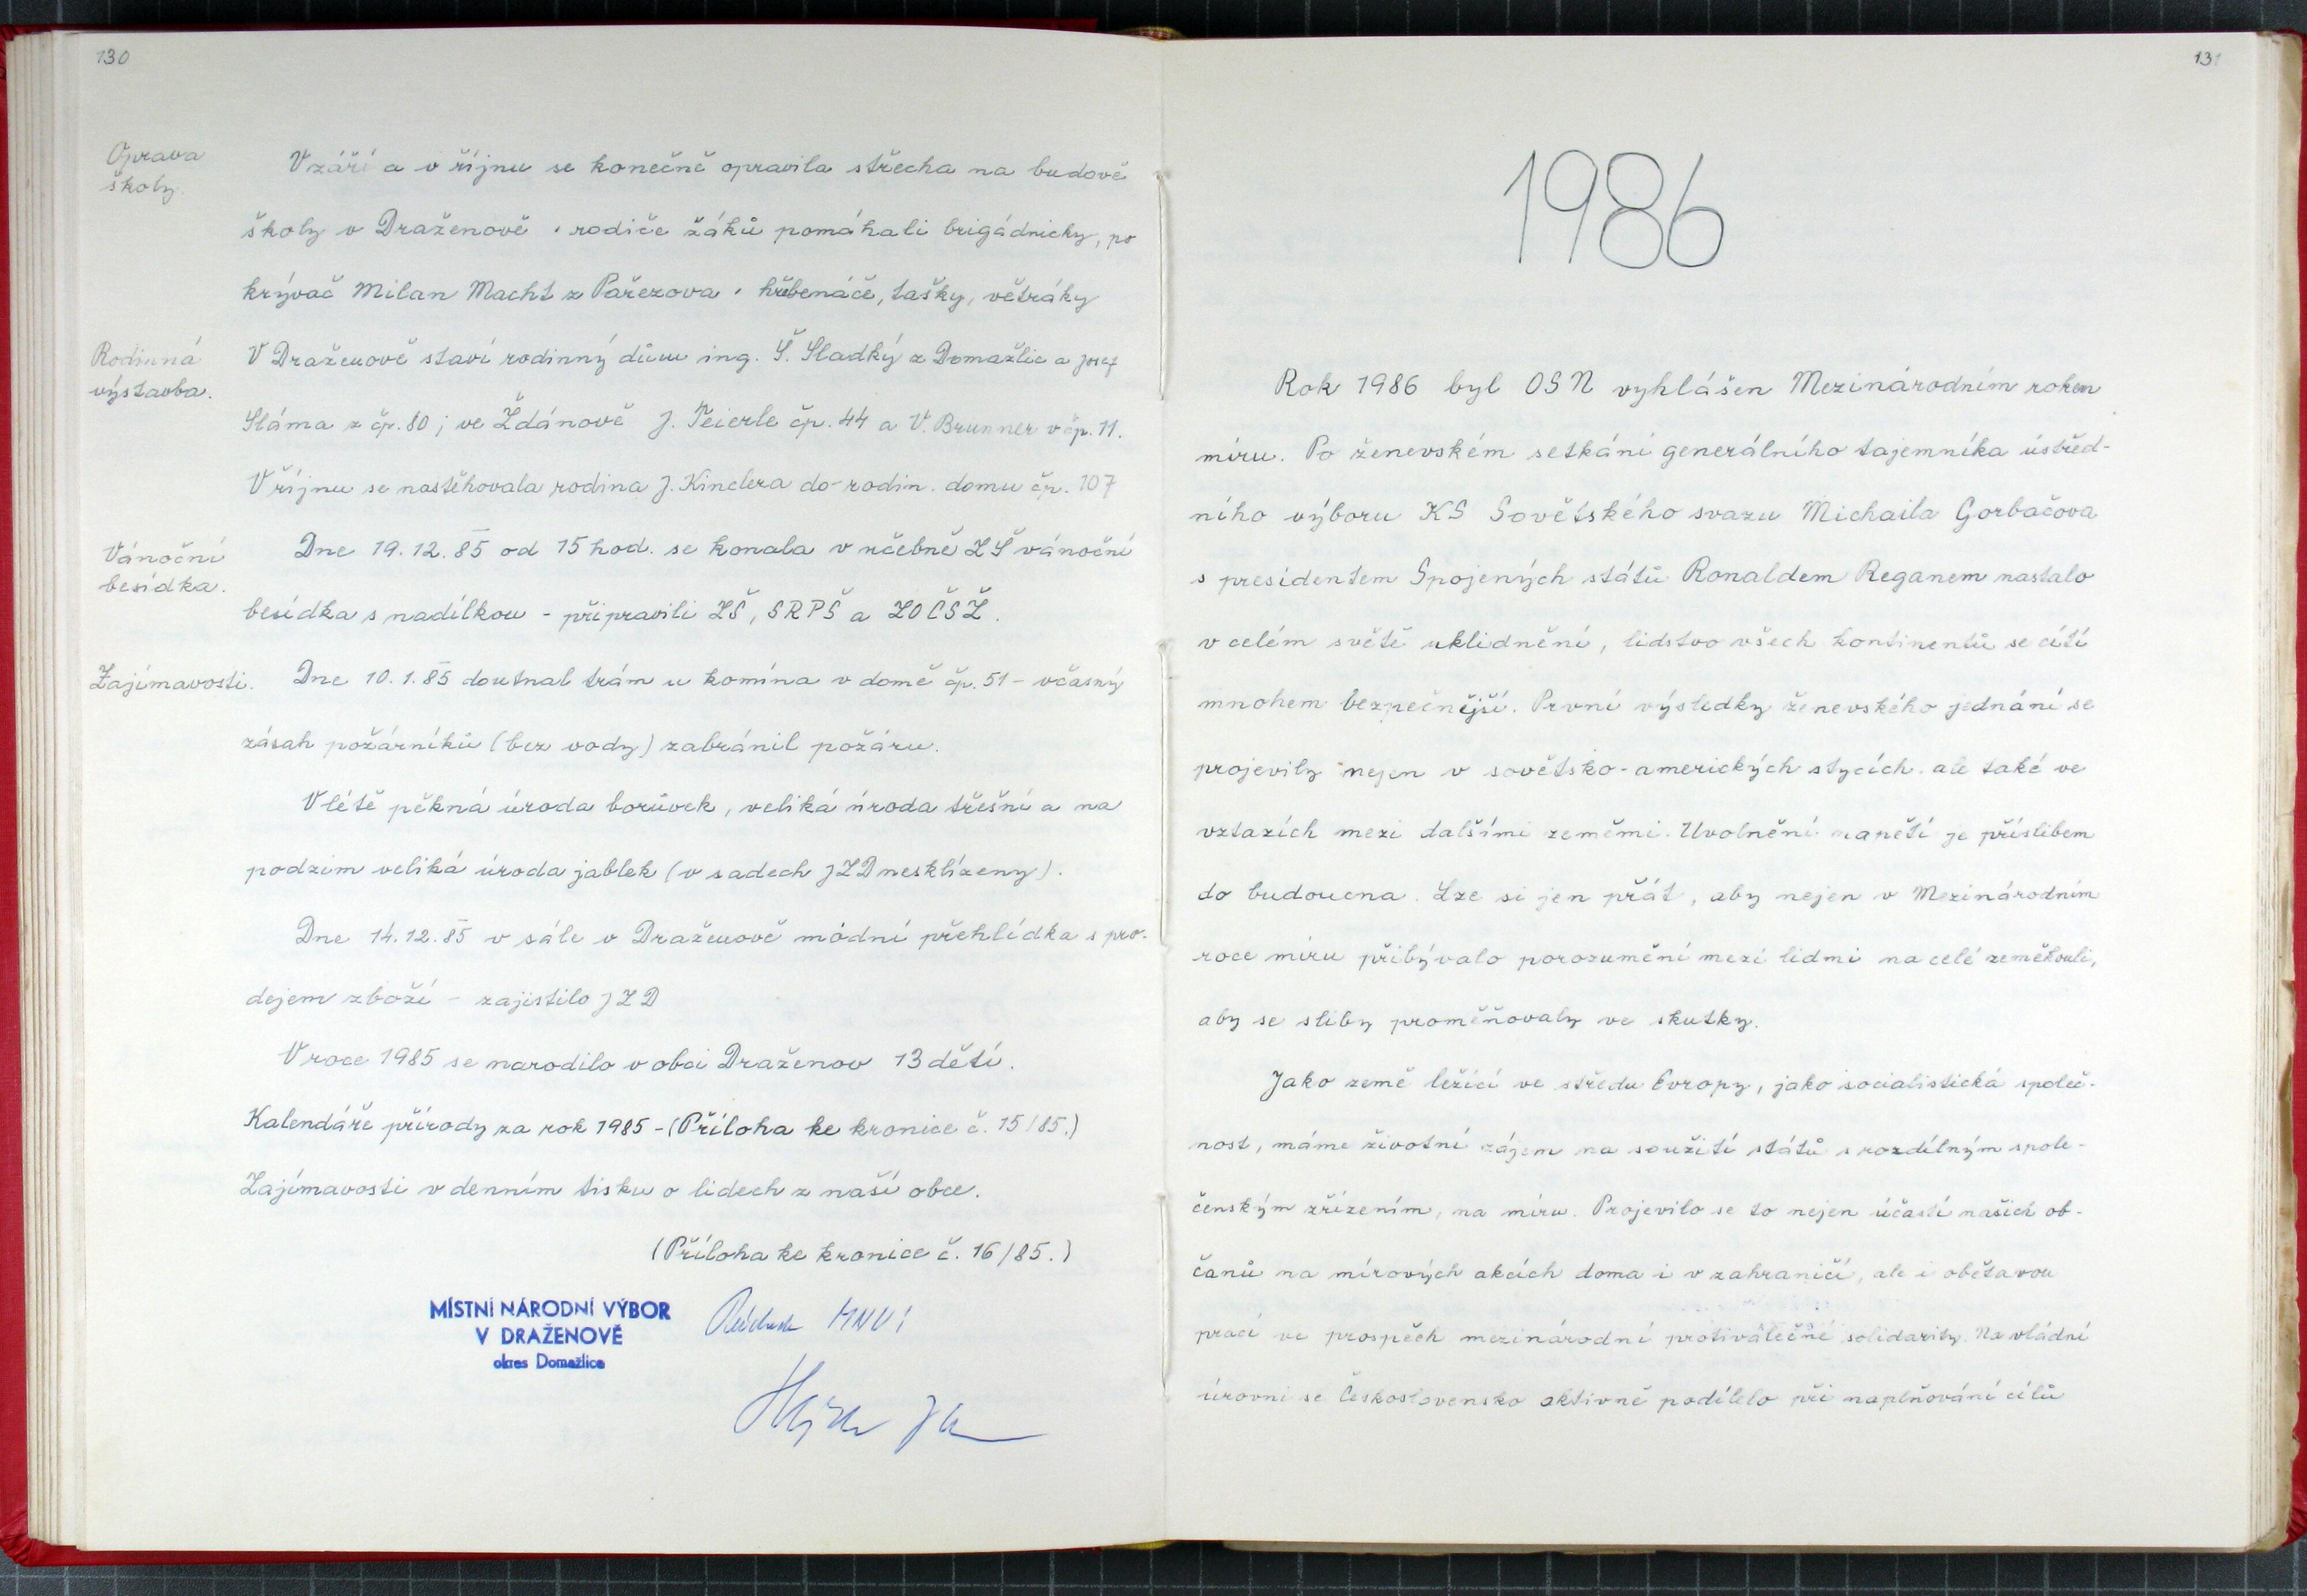 130
Oprava
školy.
V září a v říjnu se konečně opravila střecha na budově
školy v Draženově · rodiče žáků pomáhali brigádnicky, po
krývač Milan Macht z Pařezova · hřebenáče, tašky, větráky
Rodinná
výstavba.
V Draženově staví rodinný dům ing. Š. Sladký z Domažlic a Josef
Sláma z čp. 80 ; ve Ždánově J. Teierle čp. 44 a V. Brunner v čp. 11.
V říjnu se nastěhovala rodina J. Kinclera do rodin. domu čp. 107
Vánoční
besídka.
Dne 19.12.85 od 15 hod. se konala v učebně ZŠ vánoční
besídka s nadílkou - připravili ZŠ, SRPŠ a ZO ČSŽ.
Zajímavosti.
Dne 10.1.85 doutnal trám u komína v domě čp. 51 - včasný
zásah požárníků (bez vody) zabránil požáru.
V létě pěkná úroda borůvek, veliká úroda třešní a na
podzim veliká úroda jablek (v sadech JZD nesklízeny).
Dne 14.12.85 v sále v Draženově módní přehlídka s pro-
dejem zboží - zajistilo JZD
V roce 1985 se narodilo v obci Draženov 13 dětí.
Kalendáře přírody za rok 1985 - (Příloha ke kronice č. 15/85.)
Zajímavosti v denním tisku o lidech z naší obce.
(Příloha ke kronice č. 16/85.)
MÍSTNÍ NÁRODNÍ VÝBOR
V DRAŽENOVĚ
okres Domažlice
MNV:
131
1986
Rok 1986 byl OSN vyhlášen Mezinárodním rokem
míru. Po ženevském setkání generálního tajemníka ústřed-
ního výboru KS Sovětského svazu Michaila Gorbačova
s presidentem Spojených států Ronaldem Reganem nastalo
v celém světě uklidnění, lidstvo všech kontinentů se cítí
mnohem bezpečnější. První výsledky ženevského jednání se
projevily nejen v sovětsko-amerických stycích. ale také ve
vztazích mezi dalšími zeměmi. Uvolnění napětí je příslibem
do budoucna. Lze si jen přát, aby nejen v Mezinárodním
roce míru přibývalo porozumění mezi lidmi na celé zeměkouli,
aby se sliby proměňovaly ve skutky.
Jako země ležící ve středu Evropy, jako socialistická společ-
nost, máme životní zájem na soužití států s rozdílným spole-
čenským zřízením, na míru. Projevilo se to nejen účastí našich ob-
čanů na mírových akcích doma i v zahraničí, ale i obětavou
prací ve prospěch mezinárodní protiválečné solidarity. Na vládní
úrovni se Československo aktivně podílelo při naplňování cílů